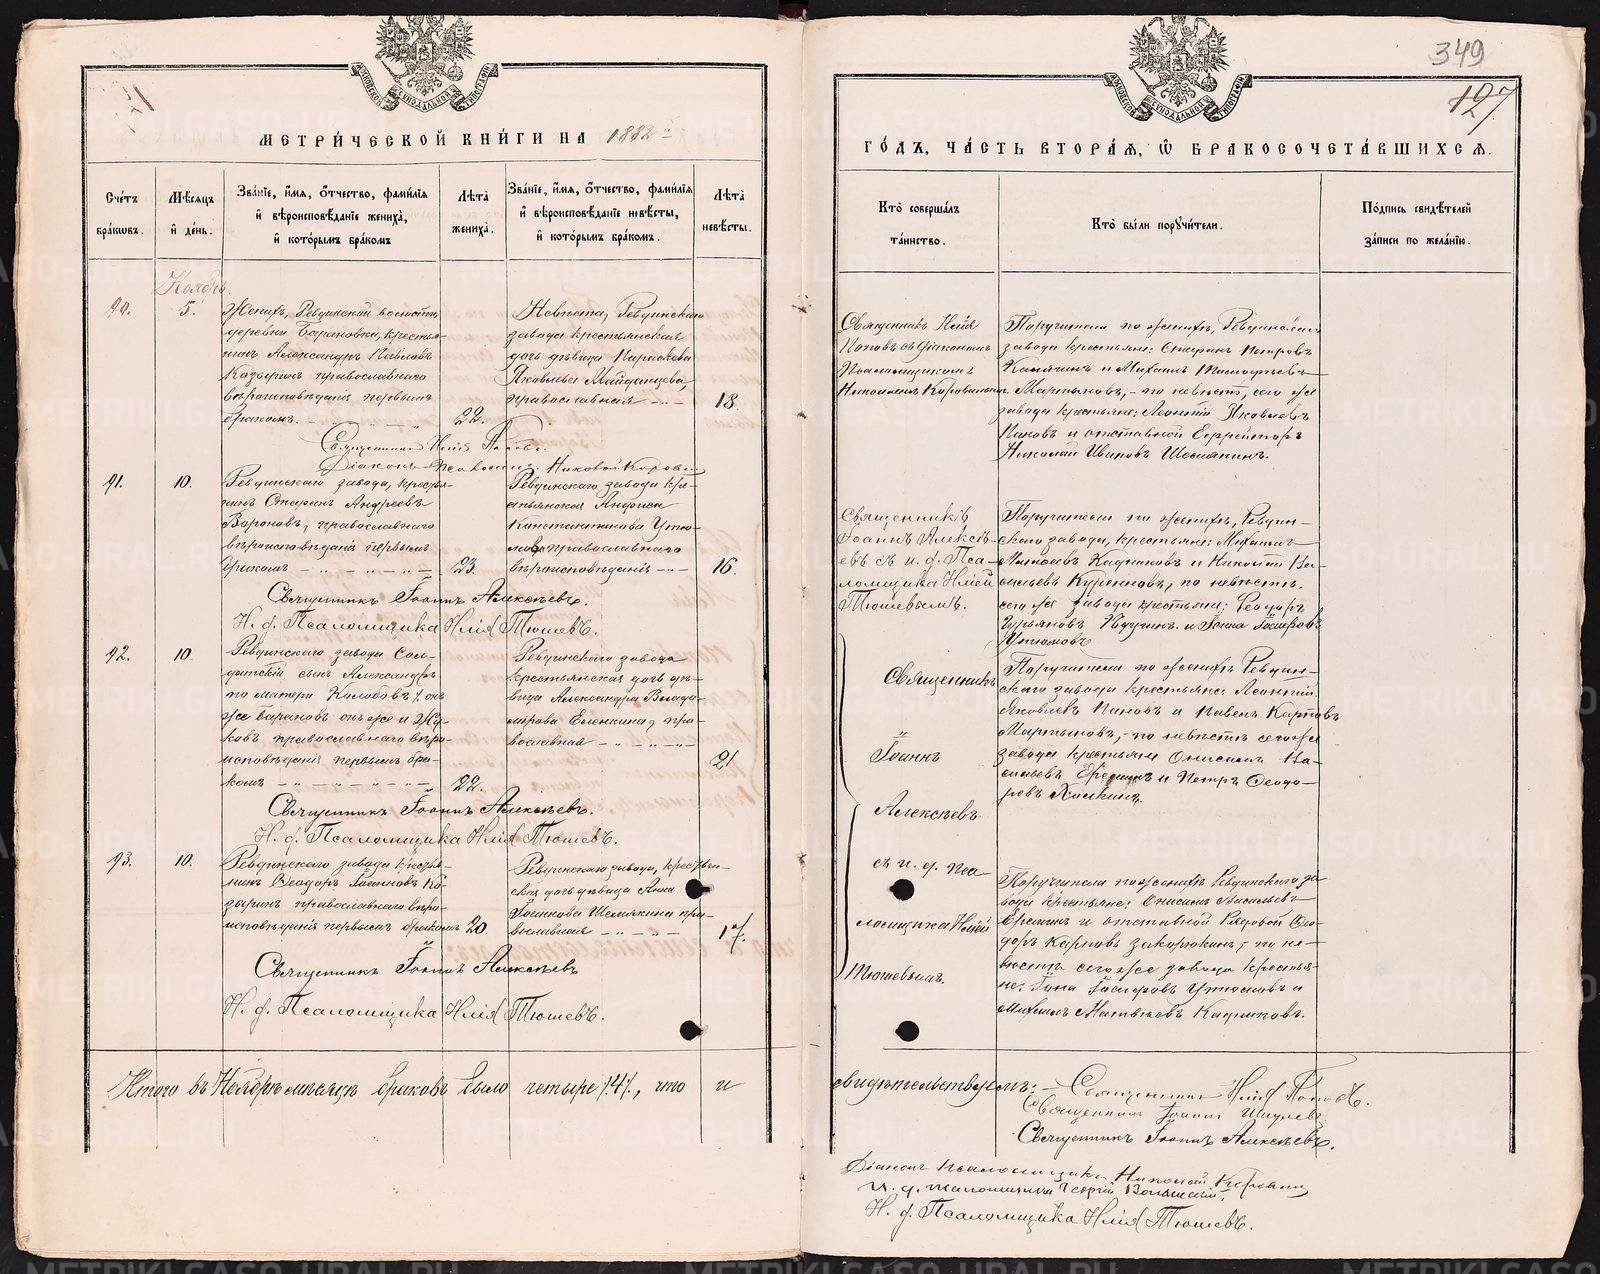 349
127
МЕТРИ́ЧЕСКОЙ КНИ́ГИ НА 1882
ГО́ДЪ, ЧА́СТЬ ВТОРА́Я, Ѡ БРАКОСОЧЕТА́ВШИХСЯ.
Сче́тъ бра́кѡвъ.
Мѣ́сяцъ и́ де́нь.
Зва́нїе, и́мя, ѻ́тчество, фами́лїя и́ вѣроисповѣ́данїе жениха̀, и́ кото́рымъ бра́комъ
Лѣ́та̀ жениха̀.
Зва́нїе, и́мя, ѻ́тчество, фами́лїя и́ вѣроисповѣ́данїе невѣ́сты, и́ кото́рымъ бра́комъ.
Лѣ́та̀ невѣ́сты.
Кто̀ соверша́лъ та́инство.
Кто̀ бы́ли порꙋчи́тели.
По́дпись свидѣ́телей за́писи по жела́нїю.
Ноябрь.
90.
5.
Женихъ, Ревдинской волости,
деревни Барановки, кресть-
нинъ Александръ Павловъ
Козыринъ православнаго
вѣроисповѣданія первымъ
бракомъ.
22.
Невѣста, Ревдинскаго
завода крестьянская
дочь дѣвица Параскева
Яковлева
православная
18
Священникъ Илія
Поповъ съ діакономъ
Псаломщикомъ
Николаемъ Коровинымъ.
Поручители по женихѣ, Ревдинскаго
завода крестьяне: Спиринъ Петровъ
и Михаилъ Тимофеевъ
Мартыновъ, - по невѣстѣ, сего же
завода крестьяне: Леонтій Яковлевъ
Пановъ и отставной Ефрейторъ
Николай Ивановъ Шемякинъ.
Священникъ Илія Поповъ.
Діаконъ Псаломщикъ Николай Коровин
91.
10.
Ревдинскаго завода, кресть-
нинъ Спиринъ Андреевъ
Вороновъ, православнаго
вѣроисповѣданія первымъ
бракомъ
23.
Ревдинскаго завода кре-
стьянская Анфиса
Константинова Утю-
мова православнаго
вѣроисповѣданія
16.
Священникъ
Іоаннъ Алексѣ-
евъ съ и. д. Пса-
ломщика Иліей
Тюшевымъ.
Поручители по женихѣ, Ревдин-
скаго завода, крестьяне: Михаилъ
Матвеевъ Кадниковъ и Никита Ва-
сильевъ Куренновъ, по невѣстѣ.
сего же завода крестьяне: Ѳеодоръ
Гурьяновъ и Іонна Госифовъ
Утюмовъ
Священникъ Іоаннъ Алексѣевъ.
И. д. Псаломщика Илія Тюшевъ.
92.
10
Ревдинскаго завода Сол-
датскій сынъ Александръ
по матери Колобовъ, онъ
же Барановъ онъ же и Жу-
ковъ православнаго вѣро-
исповѣданія первымъ бра-
комъ
22.
Ревдинскаго завода
крестьянская дочь дѣ-
вица Александра Влади-
мірова Еленкина, пра-
вославная
21
Священникъ
Іоаннъ
Алексѣевъ
съ и. д. Пса-
ломщика Иліей
Тюшевымъ.
Поручители по женихѣ Ревдин-
скаго завода крестьяне: Леонтій
Яковлевъ Пановъ и Павелъ Карповъ
Мартыновъ, - по невѣстѣ сего же
завода крестьяне Онисимъ Ва-
сильевъ Ереминъ и Петръ Ѳеодо-
ровъ Холкинъ.
Священникъ Іоаннъ Алексѣевъ.
И. д. Псаломщика Илія Тюшевъ.
93.
10.
Ревдинскаго завода кресть-
нинъ Ѳеодоръ Іоанновъ Ко-
зыринъ православнаго вѣро-
исповѣданія первымъ бракомъ
20.
Ревдинскаго завода, крестьян-
ская дочь дѣвица Анна
Іоаннова Шемякина пра-
вославная
17.
Поручители по женихѣ Ревдинскаго за-
вода крестьяне: Онисимъ Васильевъ
Ереминъ и отставной Рядовой Ѳео-
доръ Карповъ Закорюкинъ, по не-
вѣстѣ сего же завода крестья-
не: Іона Госифовъ Утюмовъ и
Михаилъ Матвѣевъ Кадниковъ.
Священникъ Іоаннъ Алексѣевъ
И. д. Псаломщика Илія Тюшевъ.
Итого въ Ноябрѣ мѣсяцѣ браковъ было четыре /4/, что и
свидѣтельствуемъ: - Священникъ Илія Поповъ.
Священникъ Іоаннъ
Священникъ Іоаннъ Алексѣевъ.
Діаконъ Псаломщикъ Николай
И. д. Псаломщика Георгій
И. д. Псаломщика Илія Тюшевъ.
METRIKI.GASO-URAL.RU